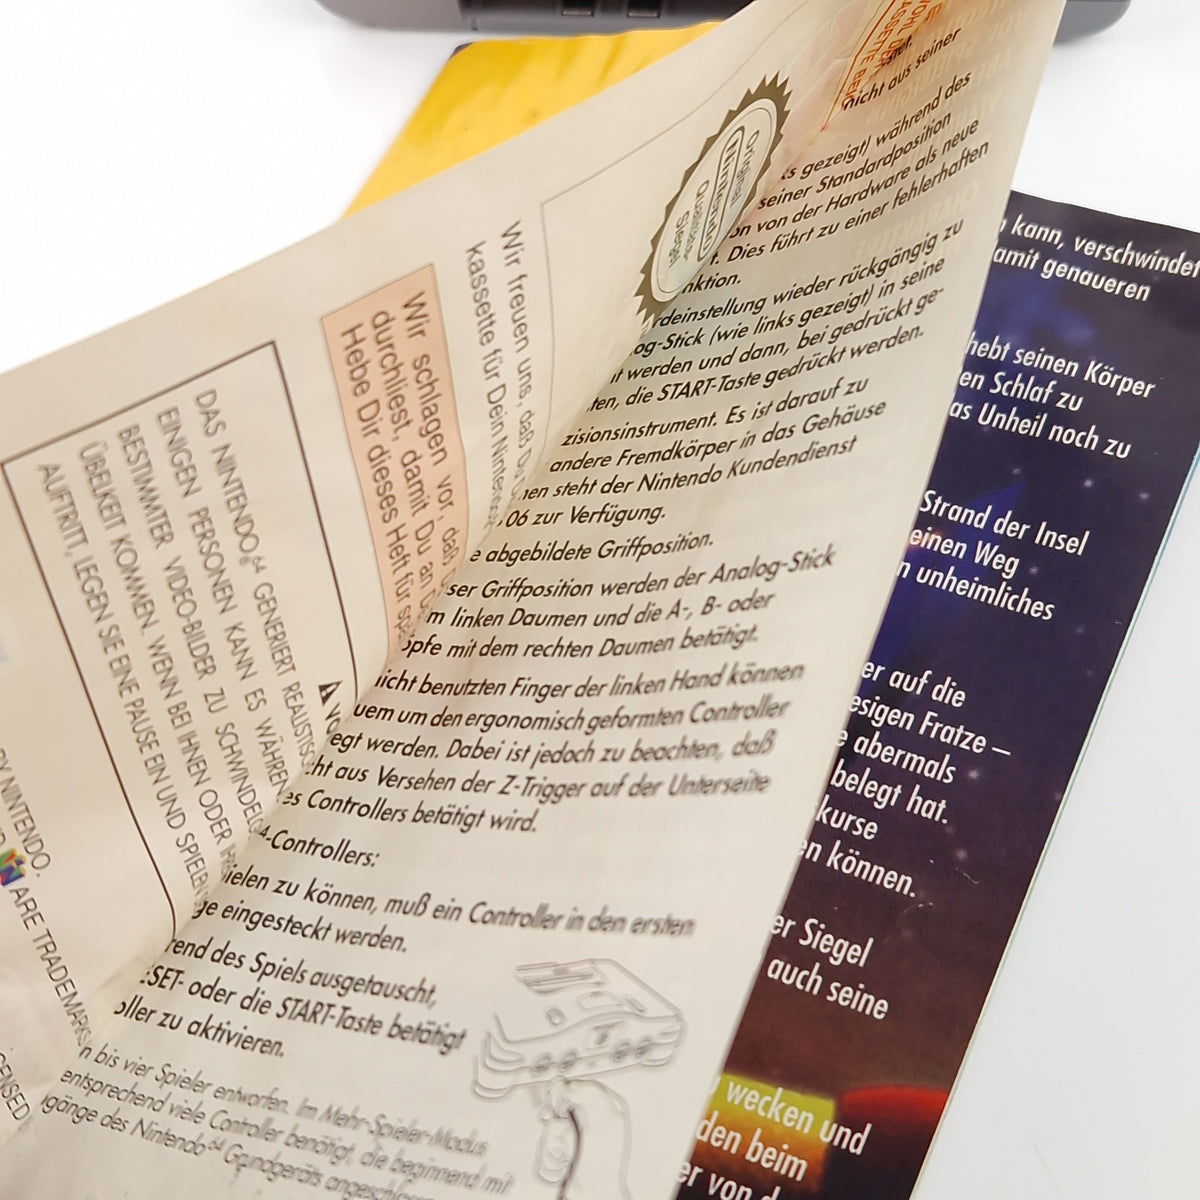 BY NINTENDO.
ARE TRADEMARKS
CENSED
DAS NINTENDO64 GENERIERT REALISTISC
EINIGEN PERSONEN KANN ES WÄHREN
BESTIMMTER VIDEO-BILDER ZU SCHWINDELG
ÜBELKEIT KOMMEN. WENN BEI IHNEN ODER IHR
AUFTRITT, LEGEN SIE EINE PAUSE EIN UND SPIELEN
Wir schlagen vor, daß
durchliest, damit Du an D
Hebe Dir dieses Heft für sp
Wir freuen uns, daß Du
kassette für Dein Nintendo
Original
Nintendo
Qualitäts-
Siegel
nicht aus seiner
ks gezeigt) während des
seiner Standardposition
on von der Hardware als neue
t. Dies führt zu einer fehlerhaften
nktion.
rdeinstellung wieder rückgängig zu
og-Stick (wie links gezeigt) in seine
it werden und dann, bei gedrückt ge-
ten, die START-Taste gedrückt werden.
zisionsinstrument. Es ist darauf zu
andere Fremdkörper in das Gehäuse
nen steht der Nintendo Kundendienst
06 zur Verfügung.
e abgebildete Griffposition.
ser Griffposition werden der Analog-Stick
m linken Daumen und die A-, B- oder
öpfe mit dem rechten Daumen betätigt.
nicht benutzten Finger der linken Hand können
uem um den ergonomisch geformten Controller
egt werden. Dabei ist jedoch zu beachten, daß
cht aus Versehen der Z-Trigger auf der Unterseite
es Controllers betätigt wird.
64-Controllers:
ielen zu können, muß ein Controller in den ersten
ge eingesteckt werden.
rend des Spiels ausgetauscht,
ESET- oder die START-Taste betätigt
oller zu aktivieren.
n bis vier Spieler entworfen. Im Mehr-Spieler-Modus
entsprechend viele Controller benötigt, die beginnend mit
gänge des Nintendo64 Grundgeräts angeschlos
n kann, verschwindet
amit genaueren
hebt seinen Körper
en Schlaf zu
as Unheil noch zu
Strand der Insel
einen Weg
n unheimliches
er auf die
esigen Fratze –
e abermals
belegt hat.
kurse
en können.
er Siegel
auch seine
wecken und
den beim
er von d